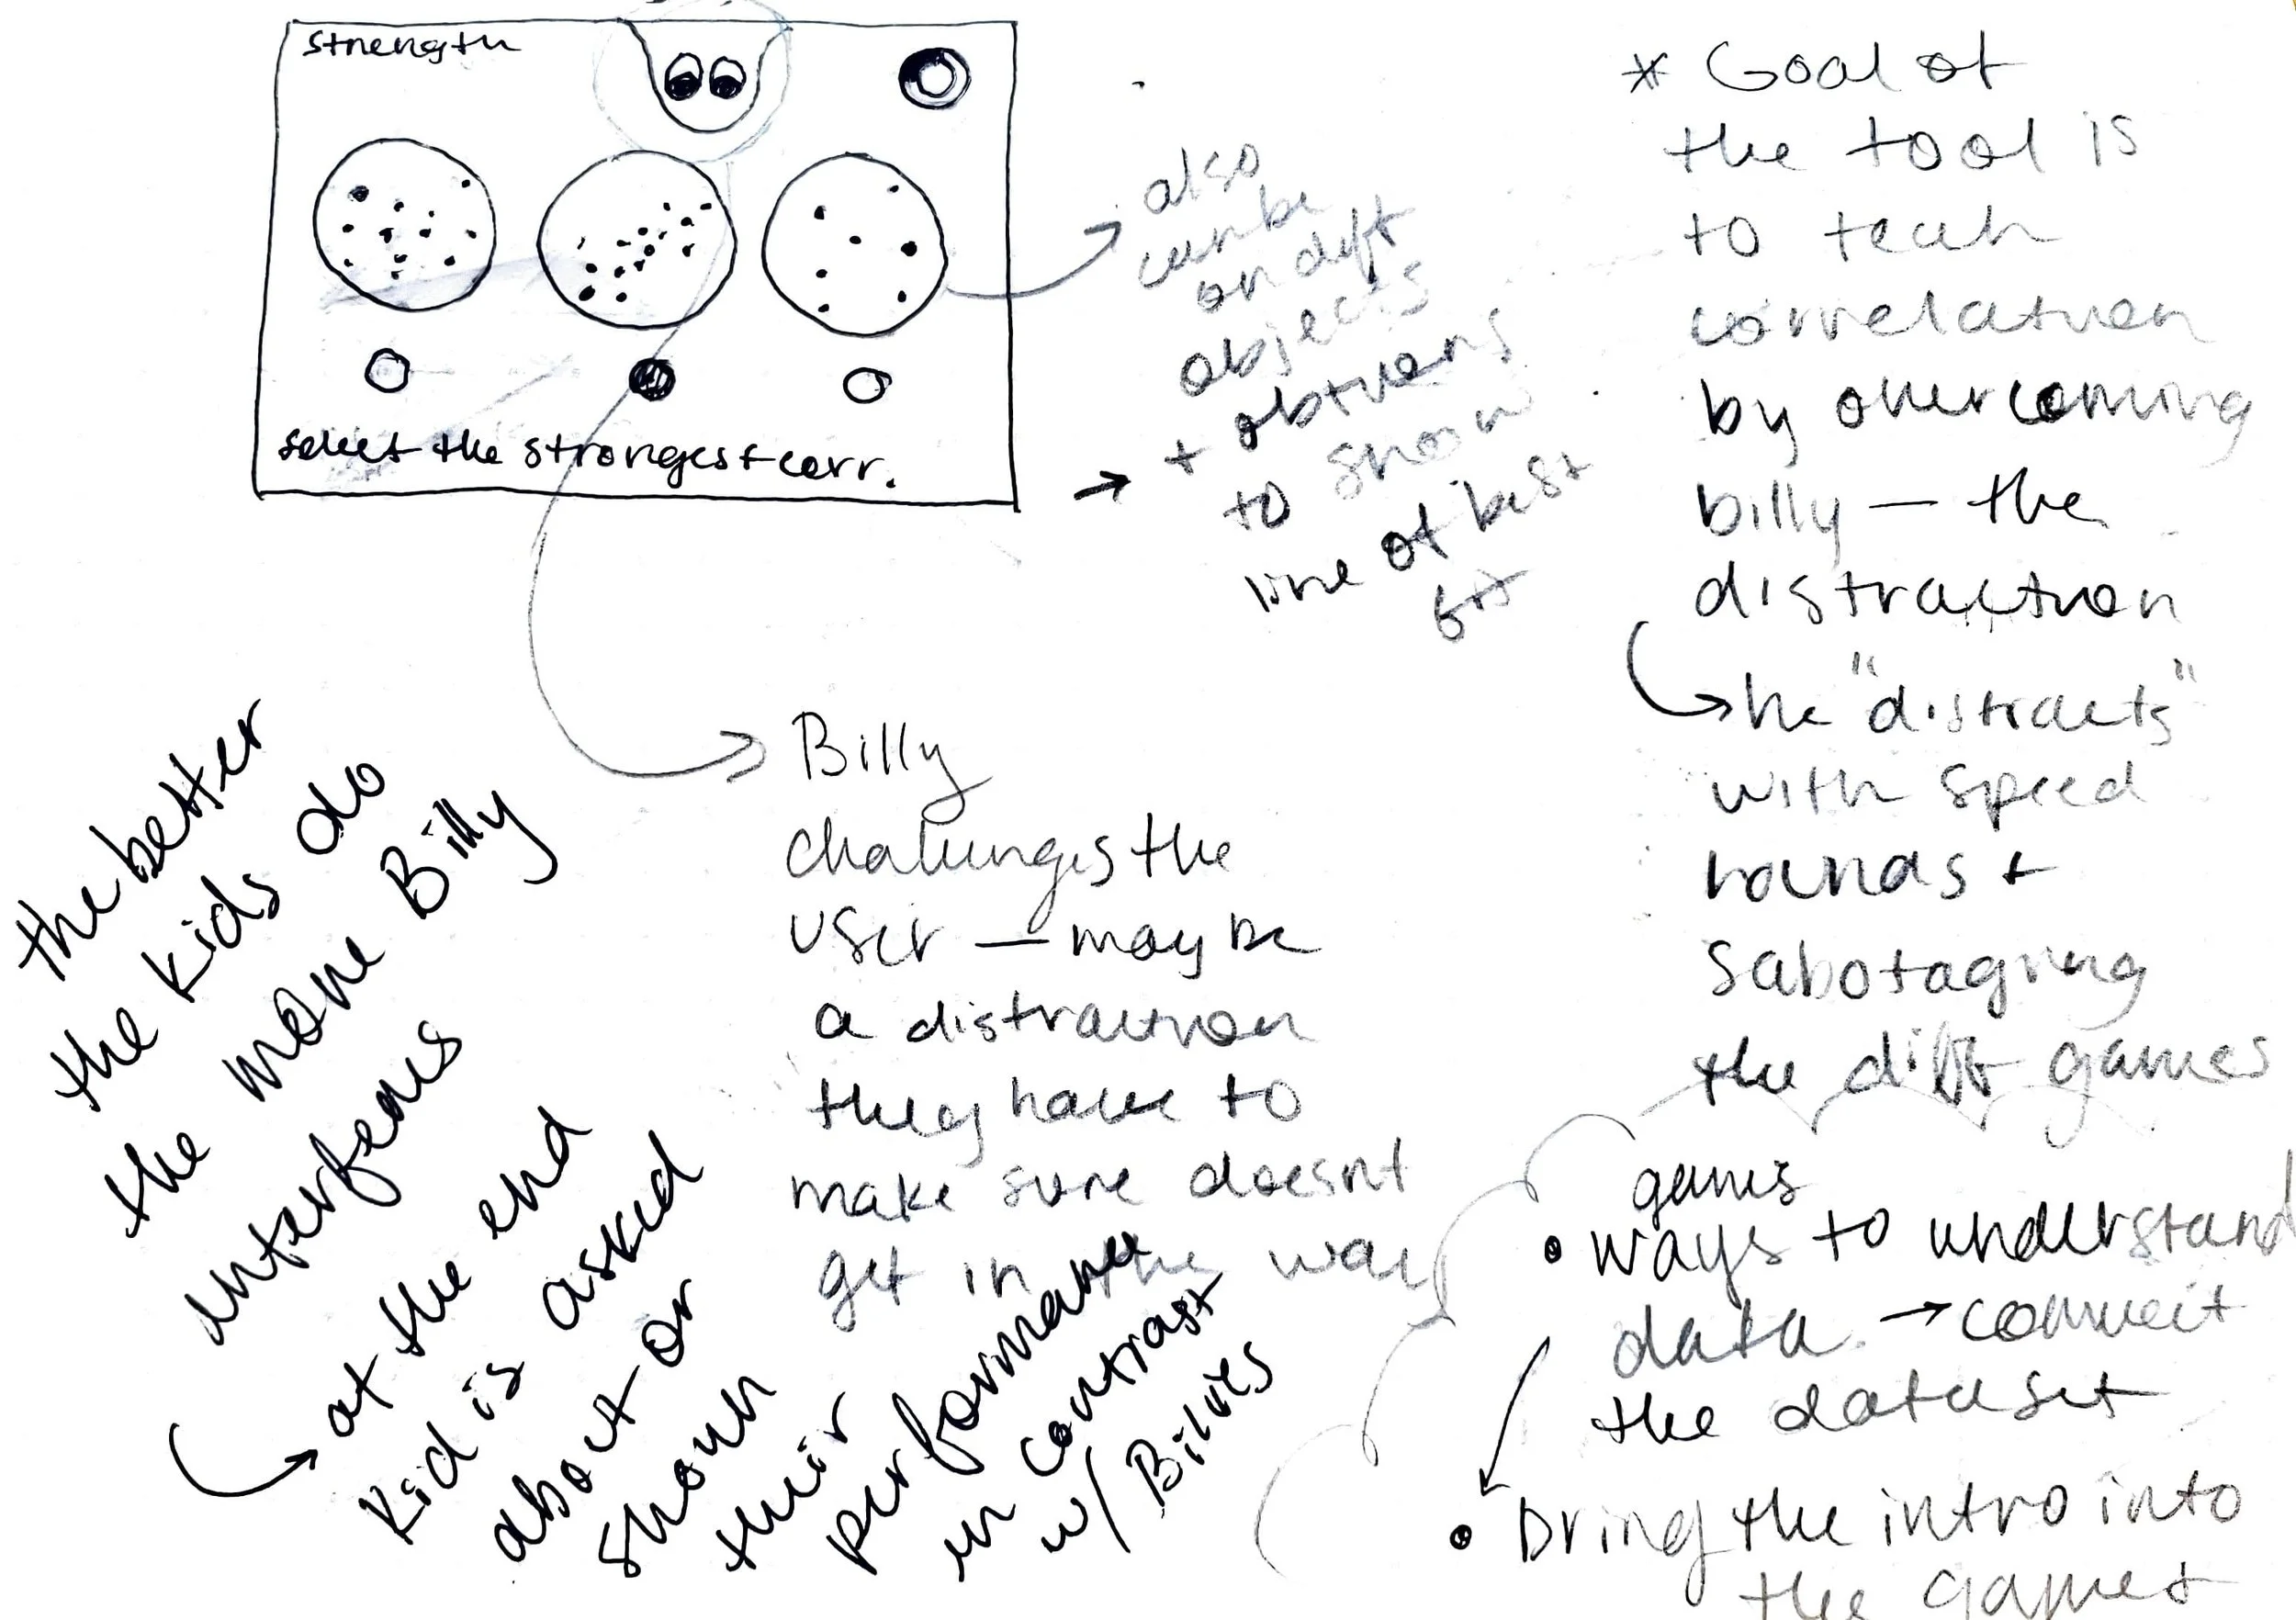 Strength
select the strongest corr.
also
can be
on diff
objects
+ obtwens
to show
line of best
fit
* Goal of
the tool is
to teach
correlation
by overcoming
billy — the
distraction
he "distracts"
with speed
rounds +
sabotaging
the diff games
games
• ways to understand
data → connect
the dataset
• Bring the intro into
the games
Billy
challenges the
user — maybe
a distraction
they have to
make sure doesnt
get in the way
the better
the kids do
the more Billy
interferes
at the end
kid is asked
about or
shown
their
performance
in contrast
w/ Billies